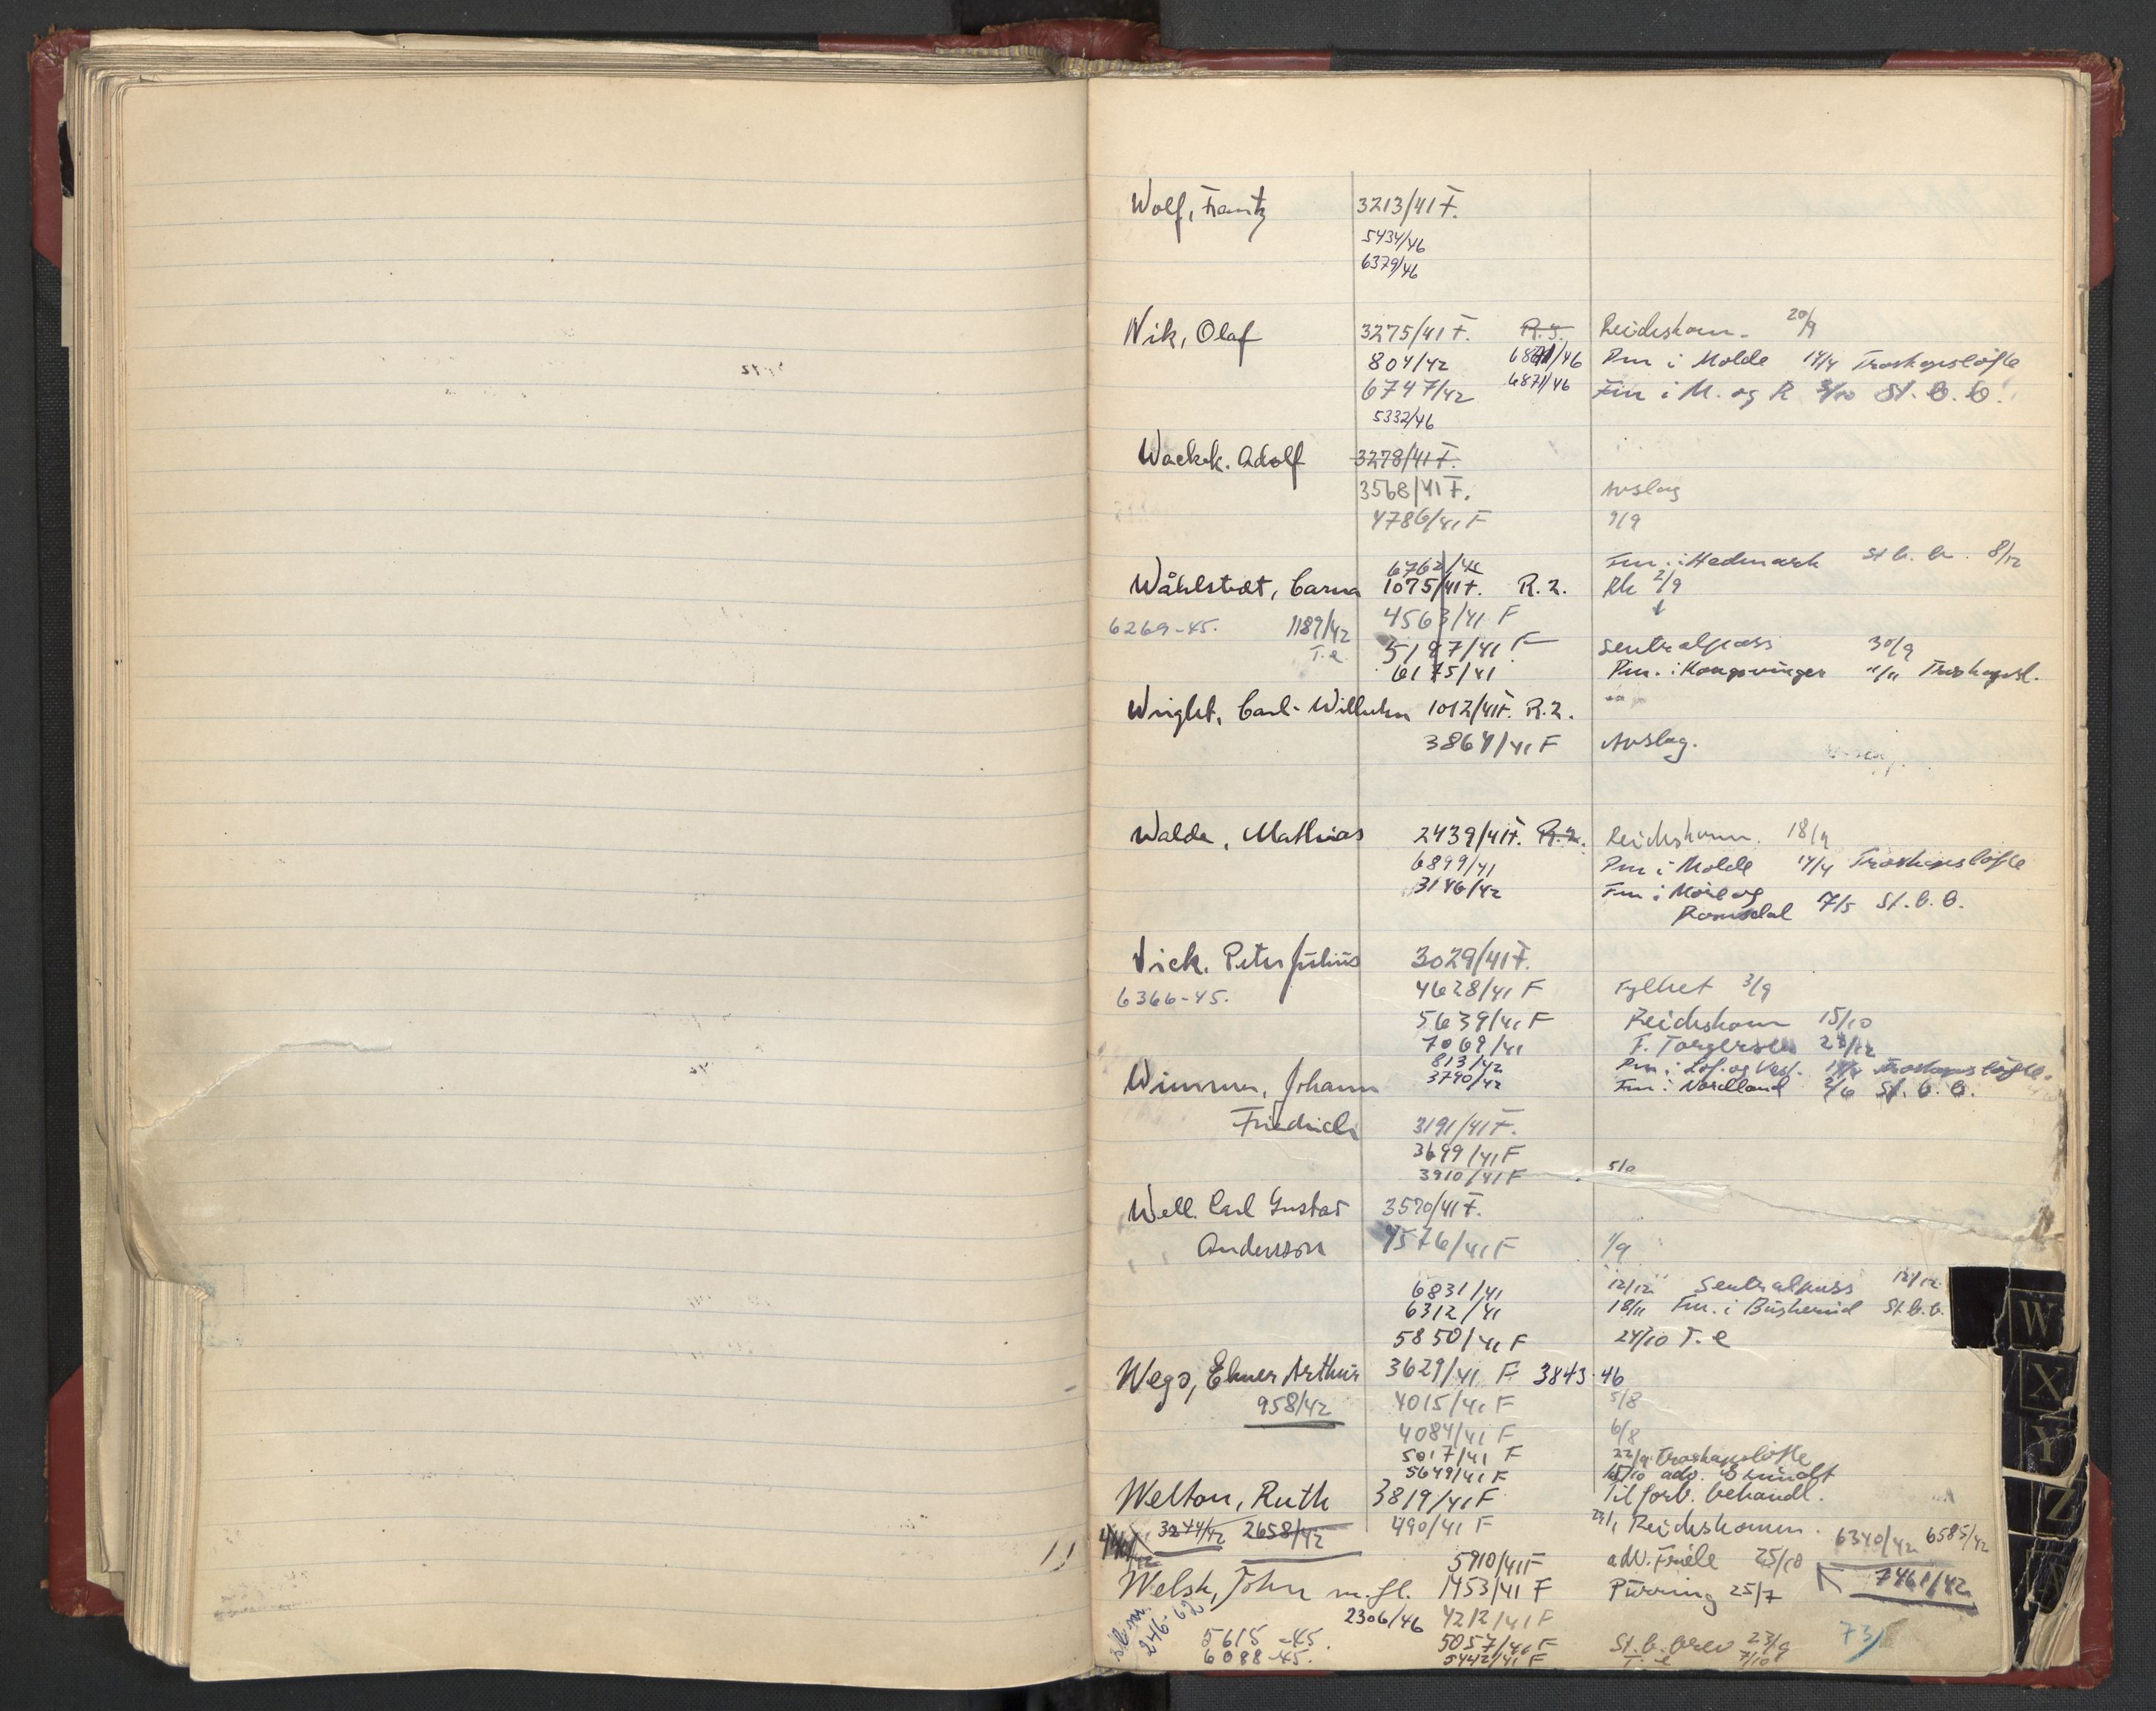 Wolf, Frantz 3213/41 F.
5434/46
6379/46
Wik, Olaf 3275/41 F. R.5. Reichskom. 20/9
804/42 6871/46 Pm i Molde 14/4 Troskapsløfte
6747/42 6871/46 Fm i M. og R 3/10 St. b. b.
5332/46
Wackek. Adolf 3278/41 F.
3568/41 F. Avslag
4786/41 F 9/9
6762/41 Fm. i Hedmark St. b. b. 8/12
Wåhlstedt, Carna 1075/41 F. R. 2. Rk 2/9
6269-45. 1189/42 4563/41 F
T.e. 5187/41 F Sentralpass 30/9
6175/41 Pm. i Kongsvinger 11/11 Troskapsl.
Wright, Carl-Wilhelm 1012/41 F. R.2.
3864/41 F Avslag.
Walde, Mathias 2439/41 F. R.2. Reichskomm. 18/9
6899/41 Pm i Molde 14/4 Troskapsløfte
3146/42 Fm i Møre og
Romsdal 7/5 St. b. b.
Vick. Peter Julius 3029/41 F.
6366-45. 4628/41 F Fylket 3/9
5639/41 F Reichskom 15/10
7069/41 F. Torgersen
813/42 Pm i Lof. og Vest. Troskapsløfte.
Wimmer, Johann 3790/42 Fm i Nordland 2/6 St. b. b.
Friedrich 3191/41 F.
3699/41 F
3910/41 F
Well. Carl Gustav 3570/41 F.
Andersson 4576/41 F 1/9
6831/41 12/12 Sentralpass 12/12
6312/41 18/11 Fm. i Buskerud St. b. b.
5850/41 F 24/10 T. e
Wego, Elmer Arthur 3629/41 F 3843-46
958/42 4015/41 F 5/8
4084/41 F 6/8
5017/41 F 22/9 Troskapsløfte
5649/41 F 15/10 adv.
Welton, Ruth 3819/41 F Til forb. behandl.
3244/42 2658/42 490/41 F 23/1 Reichskomm. 6340/42 6585/42
5910/41 F adv. Friele 25/10
Welsh, John m. fl. 1453/41 F Purring 25/7 7461/42
2306/46 4212/41 F
246-62
5615-45. 5057/41 F St. b. brev 23/9 73/
6088-45. 5442/41 F T. e 7/10
W
X
Y
Z